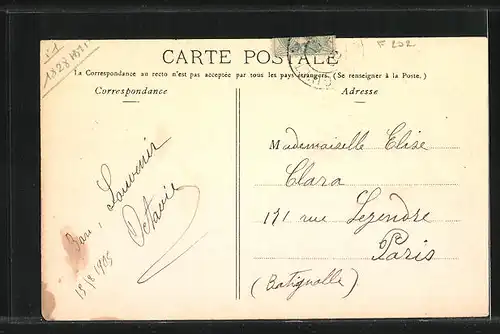 1828 1871
F 202
CARTE POSTALE
La Correspondance au recto n'est pas acceptée par tous les pays étrangers. (Se renseigner à la Poste.)
Correspondance
Adresse
Souvenir
Octavie
15/8 1905
Mademoiselle Elise
Clara
171 rue Legendre
Paris
(Batignolle)